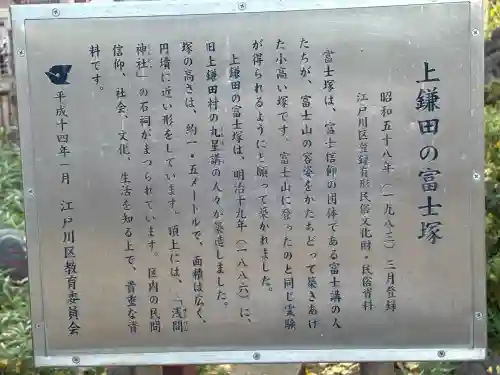 上鎌田の富士塚
昭和五十八年(一九八三)三月登録
江戸川区登録有形民俗文化財・民俗資料
富士塚は、富士信仰の団体である富士講の人
たちが、富士山の容姿をかたちどって築きあげ
た小高い塚です。富士山に登ったのと同じ霊験
が得られるようにと願って築かれました。
上鎌田の富士塚は、明治十九年(一八八六)に、
旧上鎌田村の丸星講の人々が築造しました。
塚の高さは、約一・五メートルで、面積は広く、
円墳に近い形をしています。頂上には、「浅間
神社」の石祠がまつられています。区内の民間
信仰、社会、文化、生活を知る上で、貴重な資
料です。
平成十四年一月 江戸川区教育委員会